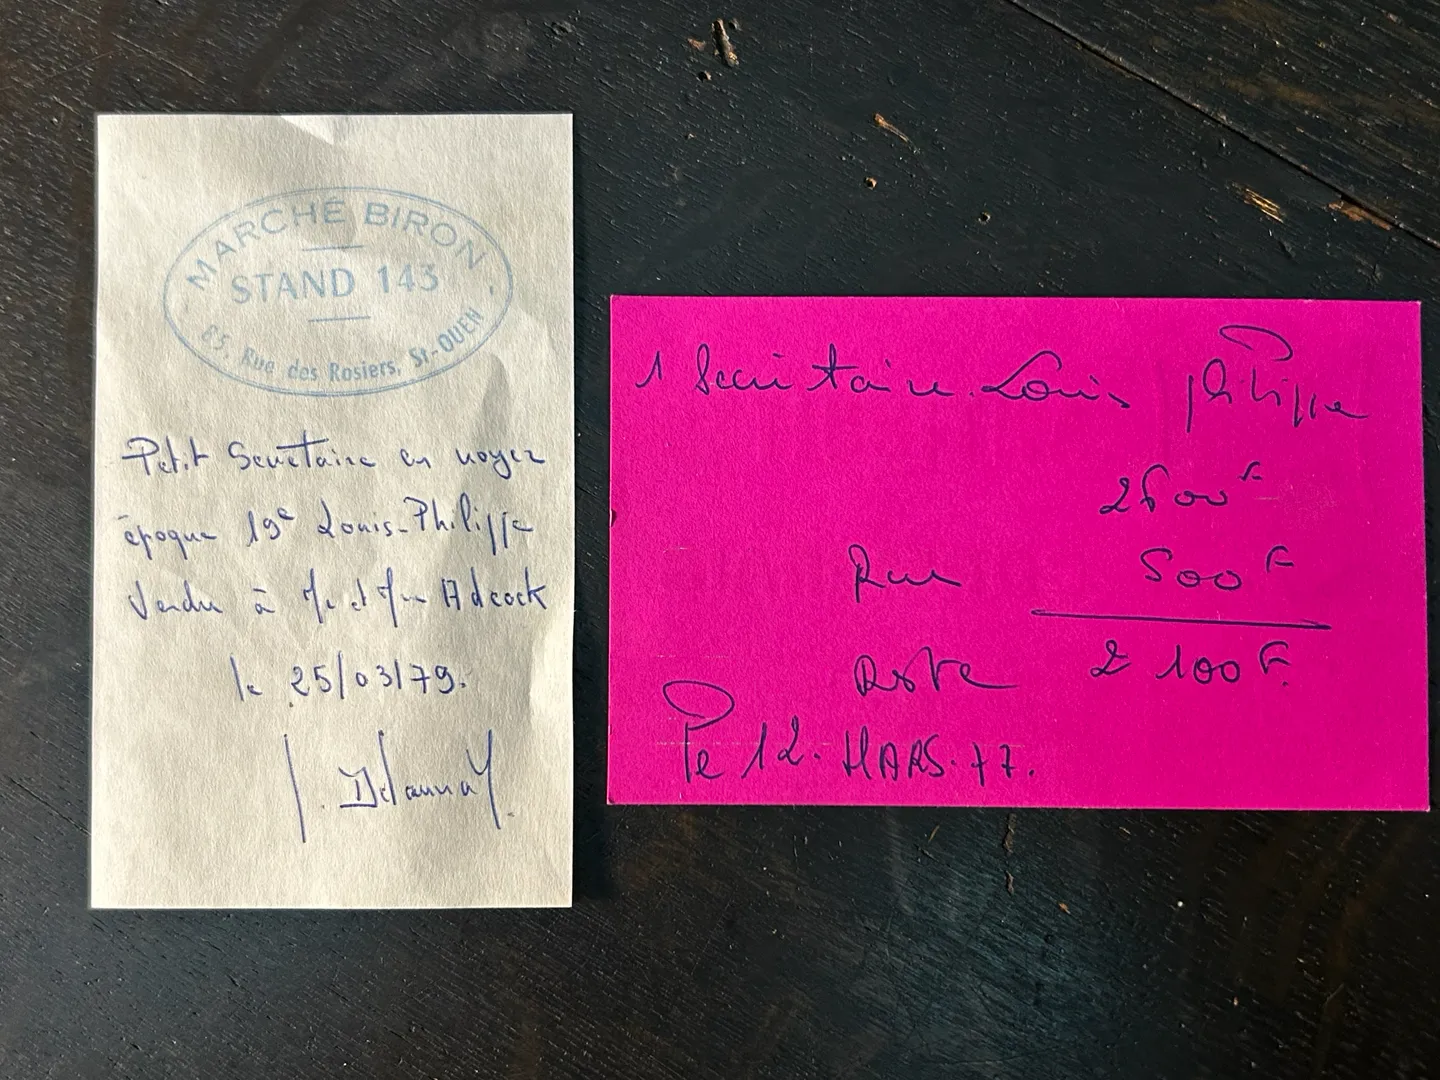 MARCHÉ BIRON
STAND 143
85, Rue des Rosiers, St-OUEN
Petit Secrétaire en noyer
époque 19e Louis-Philippe
Vendu à Mr et Mme Adcock
le 25/03/79.
J. Delaunay.
1 Secrétaire Louis philippe
2600F
Reçu 500F
Reste 2100F.
Le 12. MARS. 77.